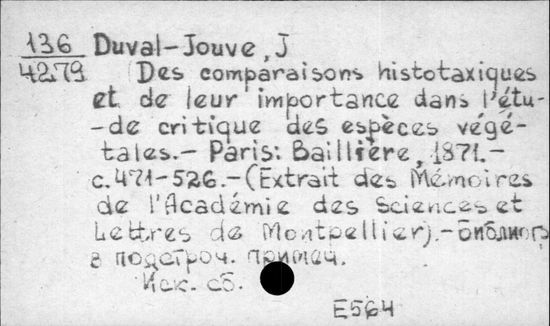 136 Duval-Jouve, J
4279 Des comparaisons histotaxiques
et de leur importance dans l'étu-
-de critique des espèces végé-
tales.- Paris: Baillière, 1871.-
c.471-526.-(Extrait des Mémoires
de l'Académie des Sciences et
Lettres de Montpellier).-Библиогр
в подстроч. примеч.
Иск. сб.
E564